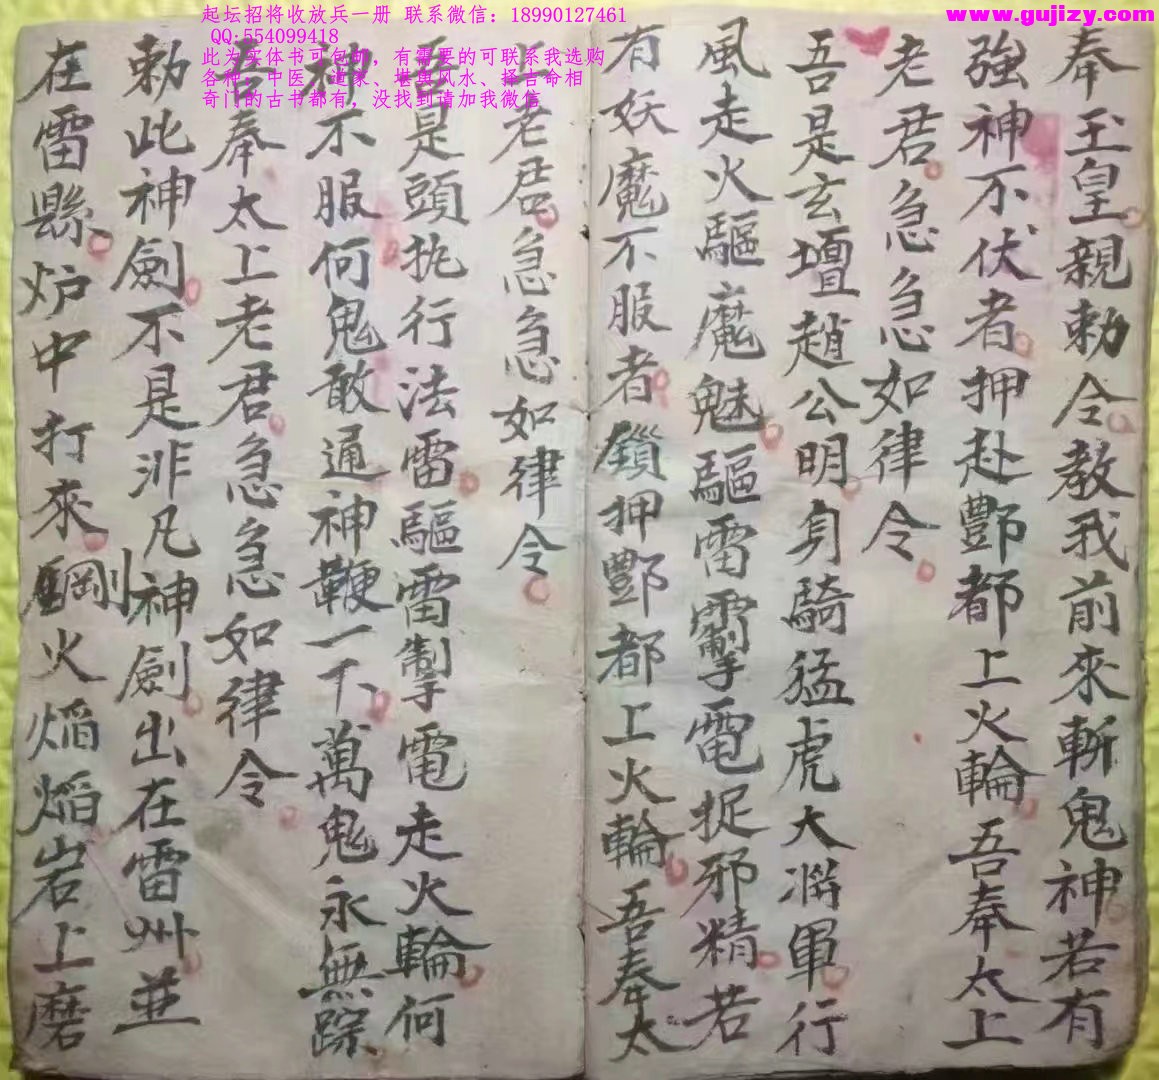 起坛招将收放兵一册 联系微信：18990127461
QQ:554099418
此为实体书可包邮，有需要的可联系我选购
各种：中医、道家、堪舆风水、择吉命相
奇门的古书都有，没找到请加我微信
www.gujizy.com
奉玉皇親勅令教我前來斬鬼神若有
強神不伏者押赴酆都上火輪吾奉太上
老君急急如律令
吾是玄壇趙公明身騎猛虎大將軍行
風走火驅魔魅驅雷霹電捉邪精若
有妖魔不服者鎖押酆都上火輪吾奉太
上老君急急如律令
吾是頭执行法雷驅雷掣電走火輪何
神不服何鬼敢通神鞭一下萬鬼永無踪
吾奉太上老君急急如律令
勅此神劍不是非凡神劍出在雷州並
在雷縣炉中打來鋼火焰焰岩上磨